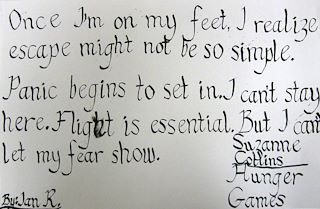 Once I'm on my feet, I realize
escape might not be so simple.
Panic begins to set in. I can't stay
here. Flight is essential. But I can't
let my fear show.
Suzanne
Collins
Hunger
Games
By: Jan R.